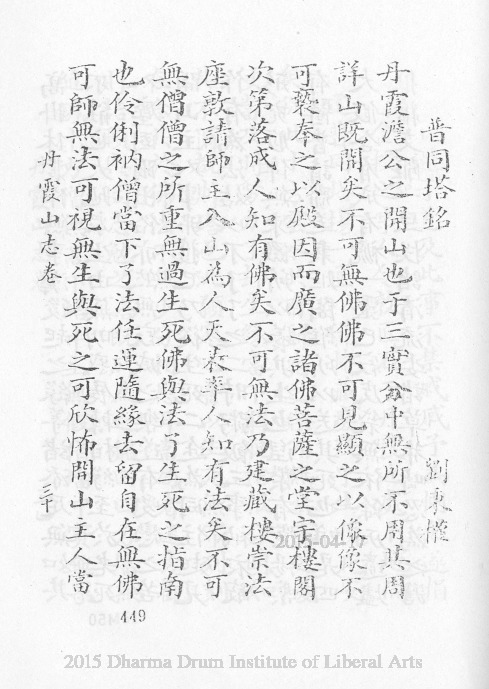 普同塔銘
劉秉權
丹霞澹公之開山也于三寶分中無所不用其周
詳山既開矣不可無佛佛不可見顯之以像像不
可褻奉之以殿因而廣之諸佛菩薩之堂宇樓閣
次第落成人知有佛矣不可無法乃建藏樓崇法
座敦請師主入山為人天表率人知有法矣不可
無僧僧之所重無過生死佛與法了生死之指南
也伶俐衲僧當下了法任運隨緣去留自在無佛
可師無法可視無生與死之可欣怖開山主人當
丹霞山志卷
三十
449
2015 Dharma Drum Institute of Liberal Arts